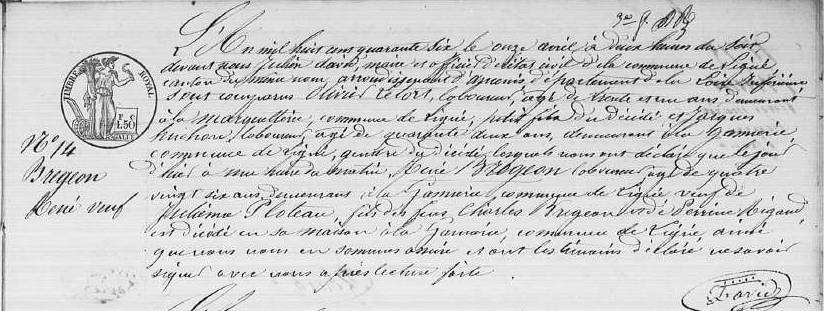 3e g. 
L'An mil huit cens quarante six le onze avril, à deux heures du soir
devant nous Julien david, maire et officier d'état civil de la commune de Ligné
canton du même nom, arrondissement d'ancenis, département de la Loire Inférieure
Sont comparus Olivier Lefort, laboureur, agé de trente et un ans demeurant
à la commune de Ligné, petit fils du décédé et jacques
laboureur, agé de quarante deux ans, demeurant à la Gamorie
commune de Ligné, gendre du décédé, lesquels nous ont déclaré que le jour
d'hier à une heure du matin, René Bregeon laboureur agé de quatre
vingt six ans, demeurant à la Gamorie, commune de Ligné veuf de
fils des feux Charles Bregeon et de Perrine Rigaud
est décédé en sa maison à la Gamorie, commune de Ligné, ainsi
que nous nous en sommes assuré et ont les témoins déclaré ne savoir
signer avec nous après lecture faite
David
TIMBRE ROYAL
1.50
No 14
Bregeon
René veuf